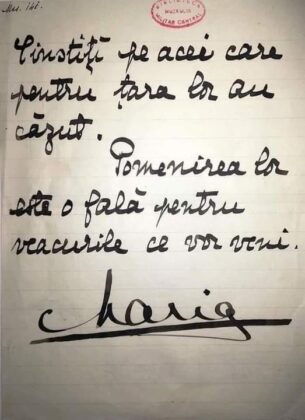 Mss. 141.
BIBLIOTECA
MUZEULUI
MILITAR CENTRAL
Cinstiți pe acei care
pentru țara lor au
căzut.
Pomenirea lor
este o fală pentru
veacurile ce vor veni.
Maria